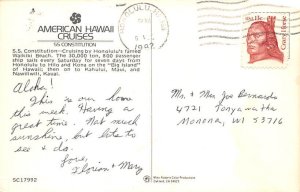 AMERICAN HAWAII
CRUISES
SS CONSTITUTION
S.S. Constitution—Cruising by Honolulu's famed
Waikiki Beach. The 30,000 ton, 800 passenger
ship sails every Saturday for seven days from
Honolulu to Hilo and Kona on the "Big Island"
of Hawaii; then on to Kahului, Maui, and
Nawiliwili, Kauai.
Aloha!
This is our home
this week. Having a
great time. Not much
sunshine, but lots to
see & do.
Love,
Florian & Mary
SC17992
HONOLULU, HI
1987
USA 13c
Crazy Horse
Mr. & Mrs Joe Bernards
4721 Tonyawatha
Monona, WI 53716